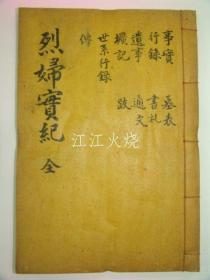 事實 墓表
行錄 書札
遺事 通文
壙記 跋
世系行錄
傳
烈婦實紀 全
江江火烧